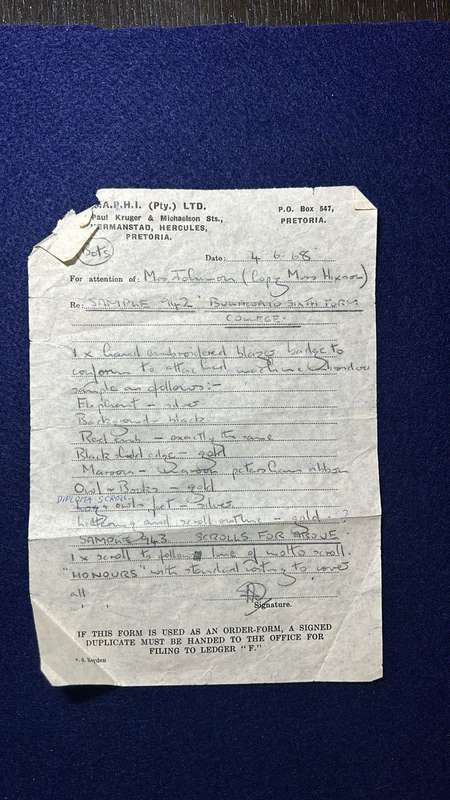 .A.P.H.I. (Pty.) LTD.
P.O. Box 547,
Paul Kruger & Michaelson Sts.,
PRETORIA.
ERMANSTAD, HERCULES,
PRETORIA.
Date: 4.6.68
For attention of: Mrs Johnson (Copy Miss Hixson)
Re: SAMPLE 942 BULAWAYO SIXTH FORM
COLLEGE.
1 x hand embroidered blazer badge to
conform to attached machine
sample as follows:-
Elephant - silver
Background - black
- exactly the same
Black edge - gold
Maroon - petersham ribbon
Owl & Books - gold
DIPLOMA SCROLL
owls feet - silver
lettering and scroll outline - gold ?
SAMPLE 943 SCROLLS FOR ABOVE
1 x scroll to follow line of motto scroll.
"HONOURS" with standard to cover
all
Signature.
IF THIS FORM IS USED AS AN ORDER-FORM, A SIGNED
DUPLICATE MUST BE HANDED TO THE OFFICE FOR
FILING TO LEDGER "F."